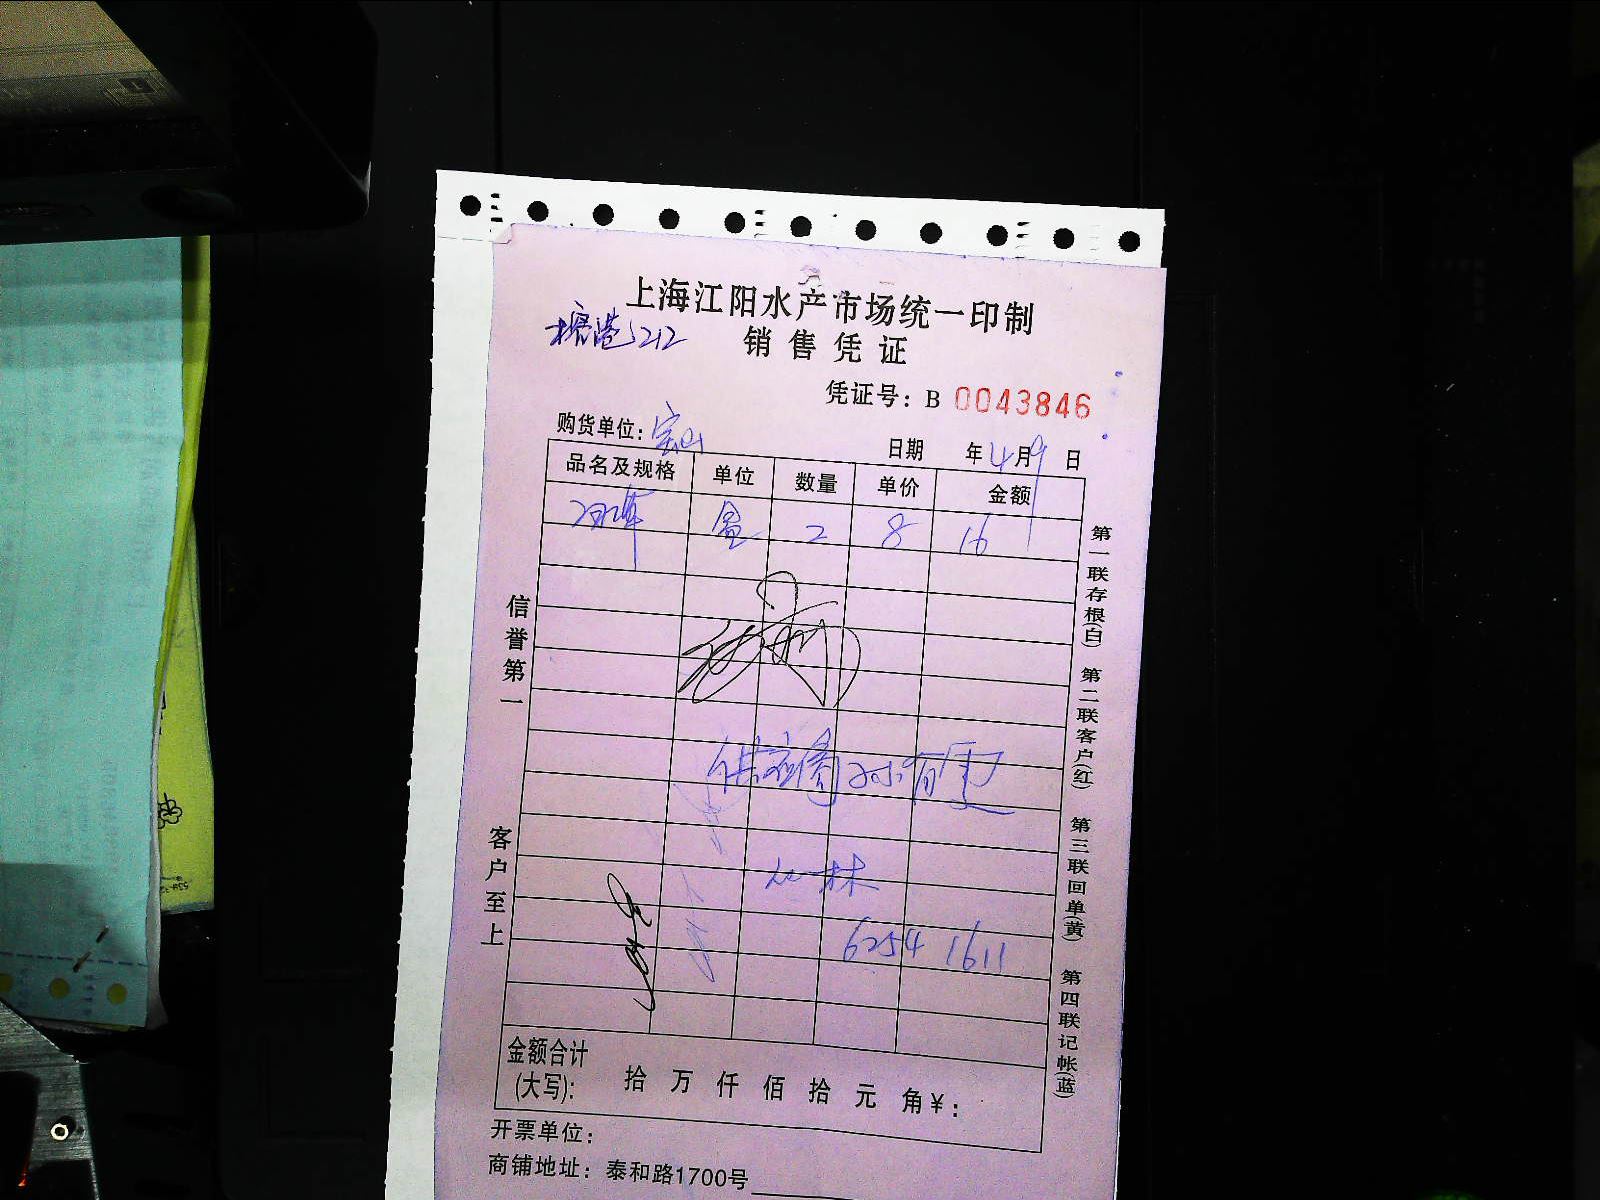 上海江阳水产市场统一印制
塘港5212
销售凭证
凭证号：B 0043846
购货单位：宝山
日期 年4月9日
品名及规格 单位 数量 单价 金额
2 8 16
信誉第一
客户至上
第一联存根(白) 第二联客户(红) 第三联回单(黄) 第四联记帐(蓝)
6254 1611
金额合计
(大写)： 拾 万 仟 佰 拾 元 角￥：
开票单位：
商铺地址：泰和路1700号